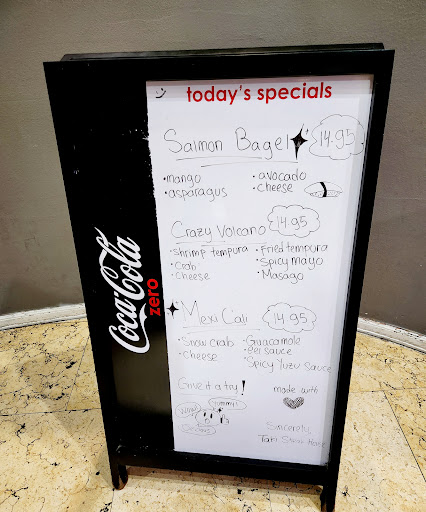 today's specials
Salmon Bagel 14.95
•mango
•asparagus
•avocado
•cheese
Crazy Volcano 14.95
•Shrimp tempura
•Crab
•Cheese
•Fried tempura
•Spicy mayo
•Masago
Mexi Cali 14.95
•Snow crab
•cheese
•Guacamole
•Eel sauce
•Spicy Yuzu sauce
Give it a try!
Yummy!
made with
Sincerely,
Coca-Cola
zero